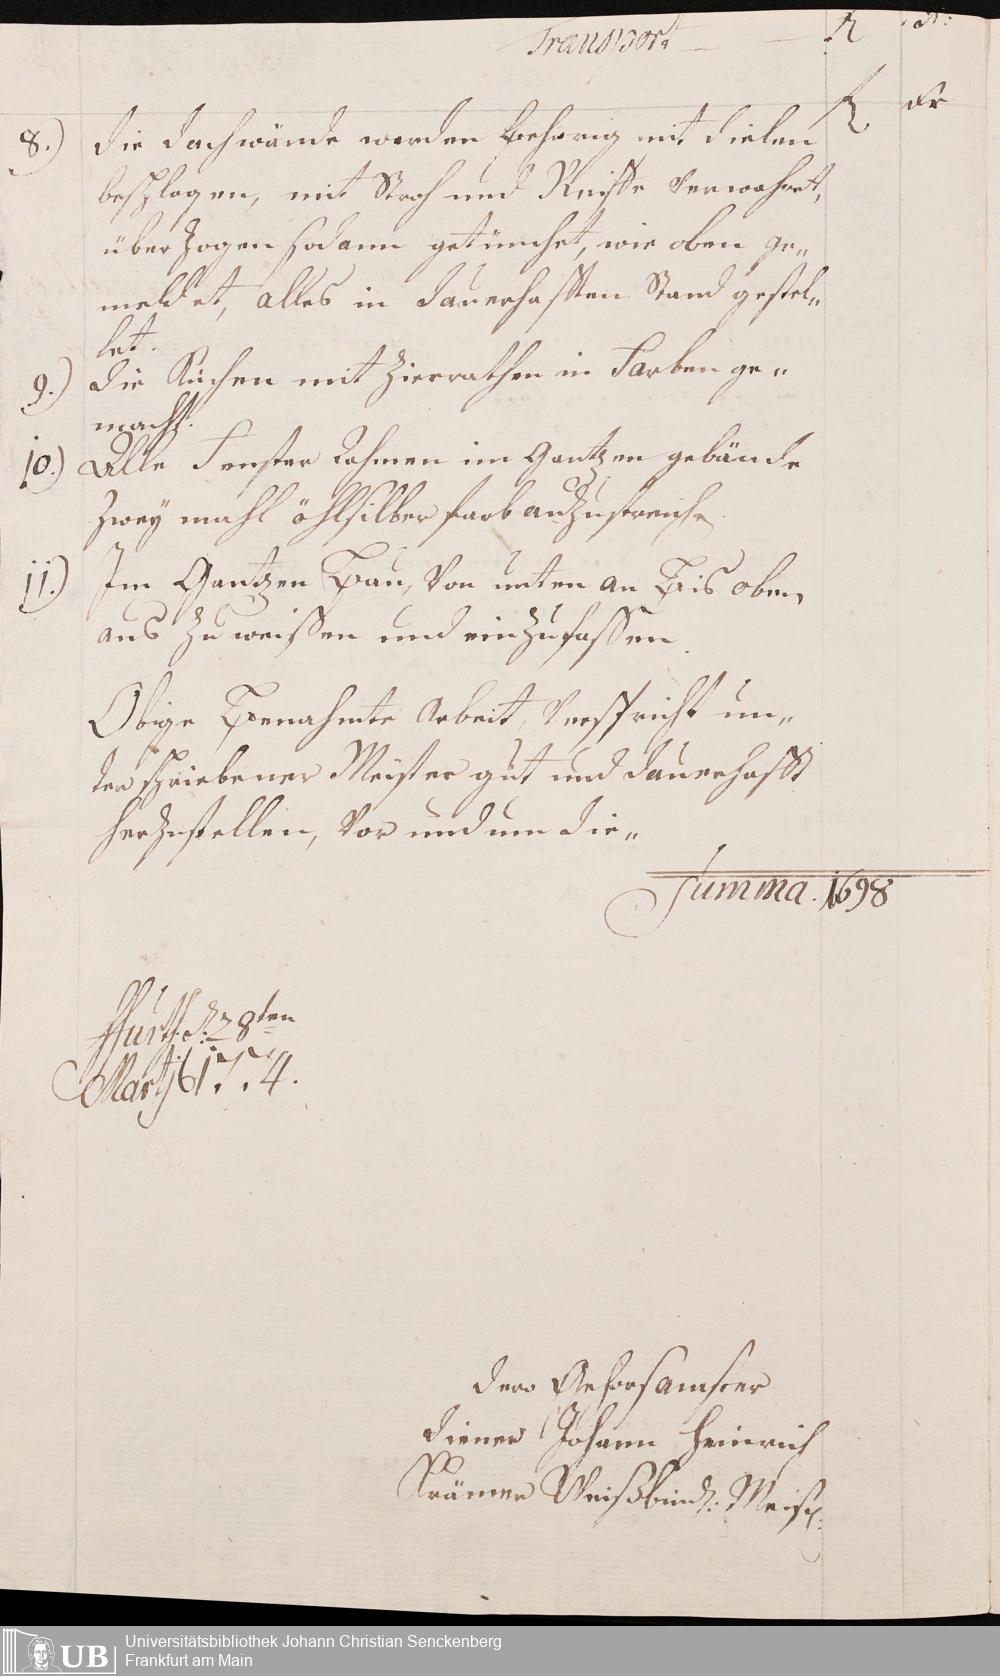 Transport — — fl. xr:
fl. xr
8.) die dachwände werden behörig mit dielen
beschlagen, mit Stroh und Reiffe verwahrt,
überzogen sodann getünchet, wie oben ge„
meldet, alles in dauerhafften Stand gestel„
let.
9.) die Küchen mit Zierrathen in Farben ge„
macht.
10.) Alle Fenster Rahmen im Gantzen gebäude
Zwey mahl öhlsilber farb anzustreichen
11.) Im Gantzen Bau, von unten an Bis oben
aus zu weissen und einzufassen.
Obige Benahmte Arbeit, verspricht un„
terschriebener Meister gut und dauerhafft
herzustellen, vor und um die„
Summa. 1698
ffurth d: 28ten
Martj 1774.
dero Gehorsamster
diener Johann Heinrich
Krämer Weißbind: Meist:
Universitätsbibliothek Johann Christian Senckenberg
UB Frankfurt am Main